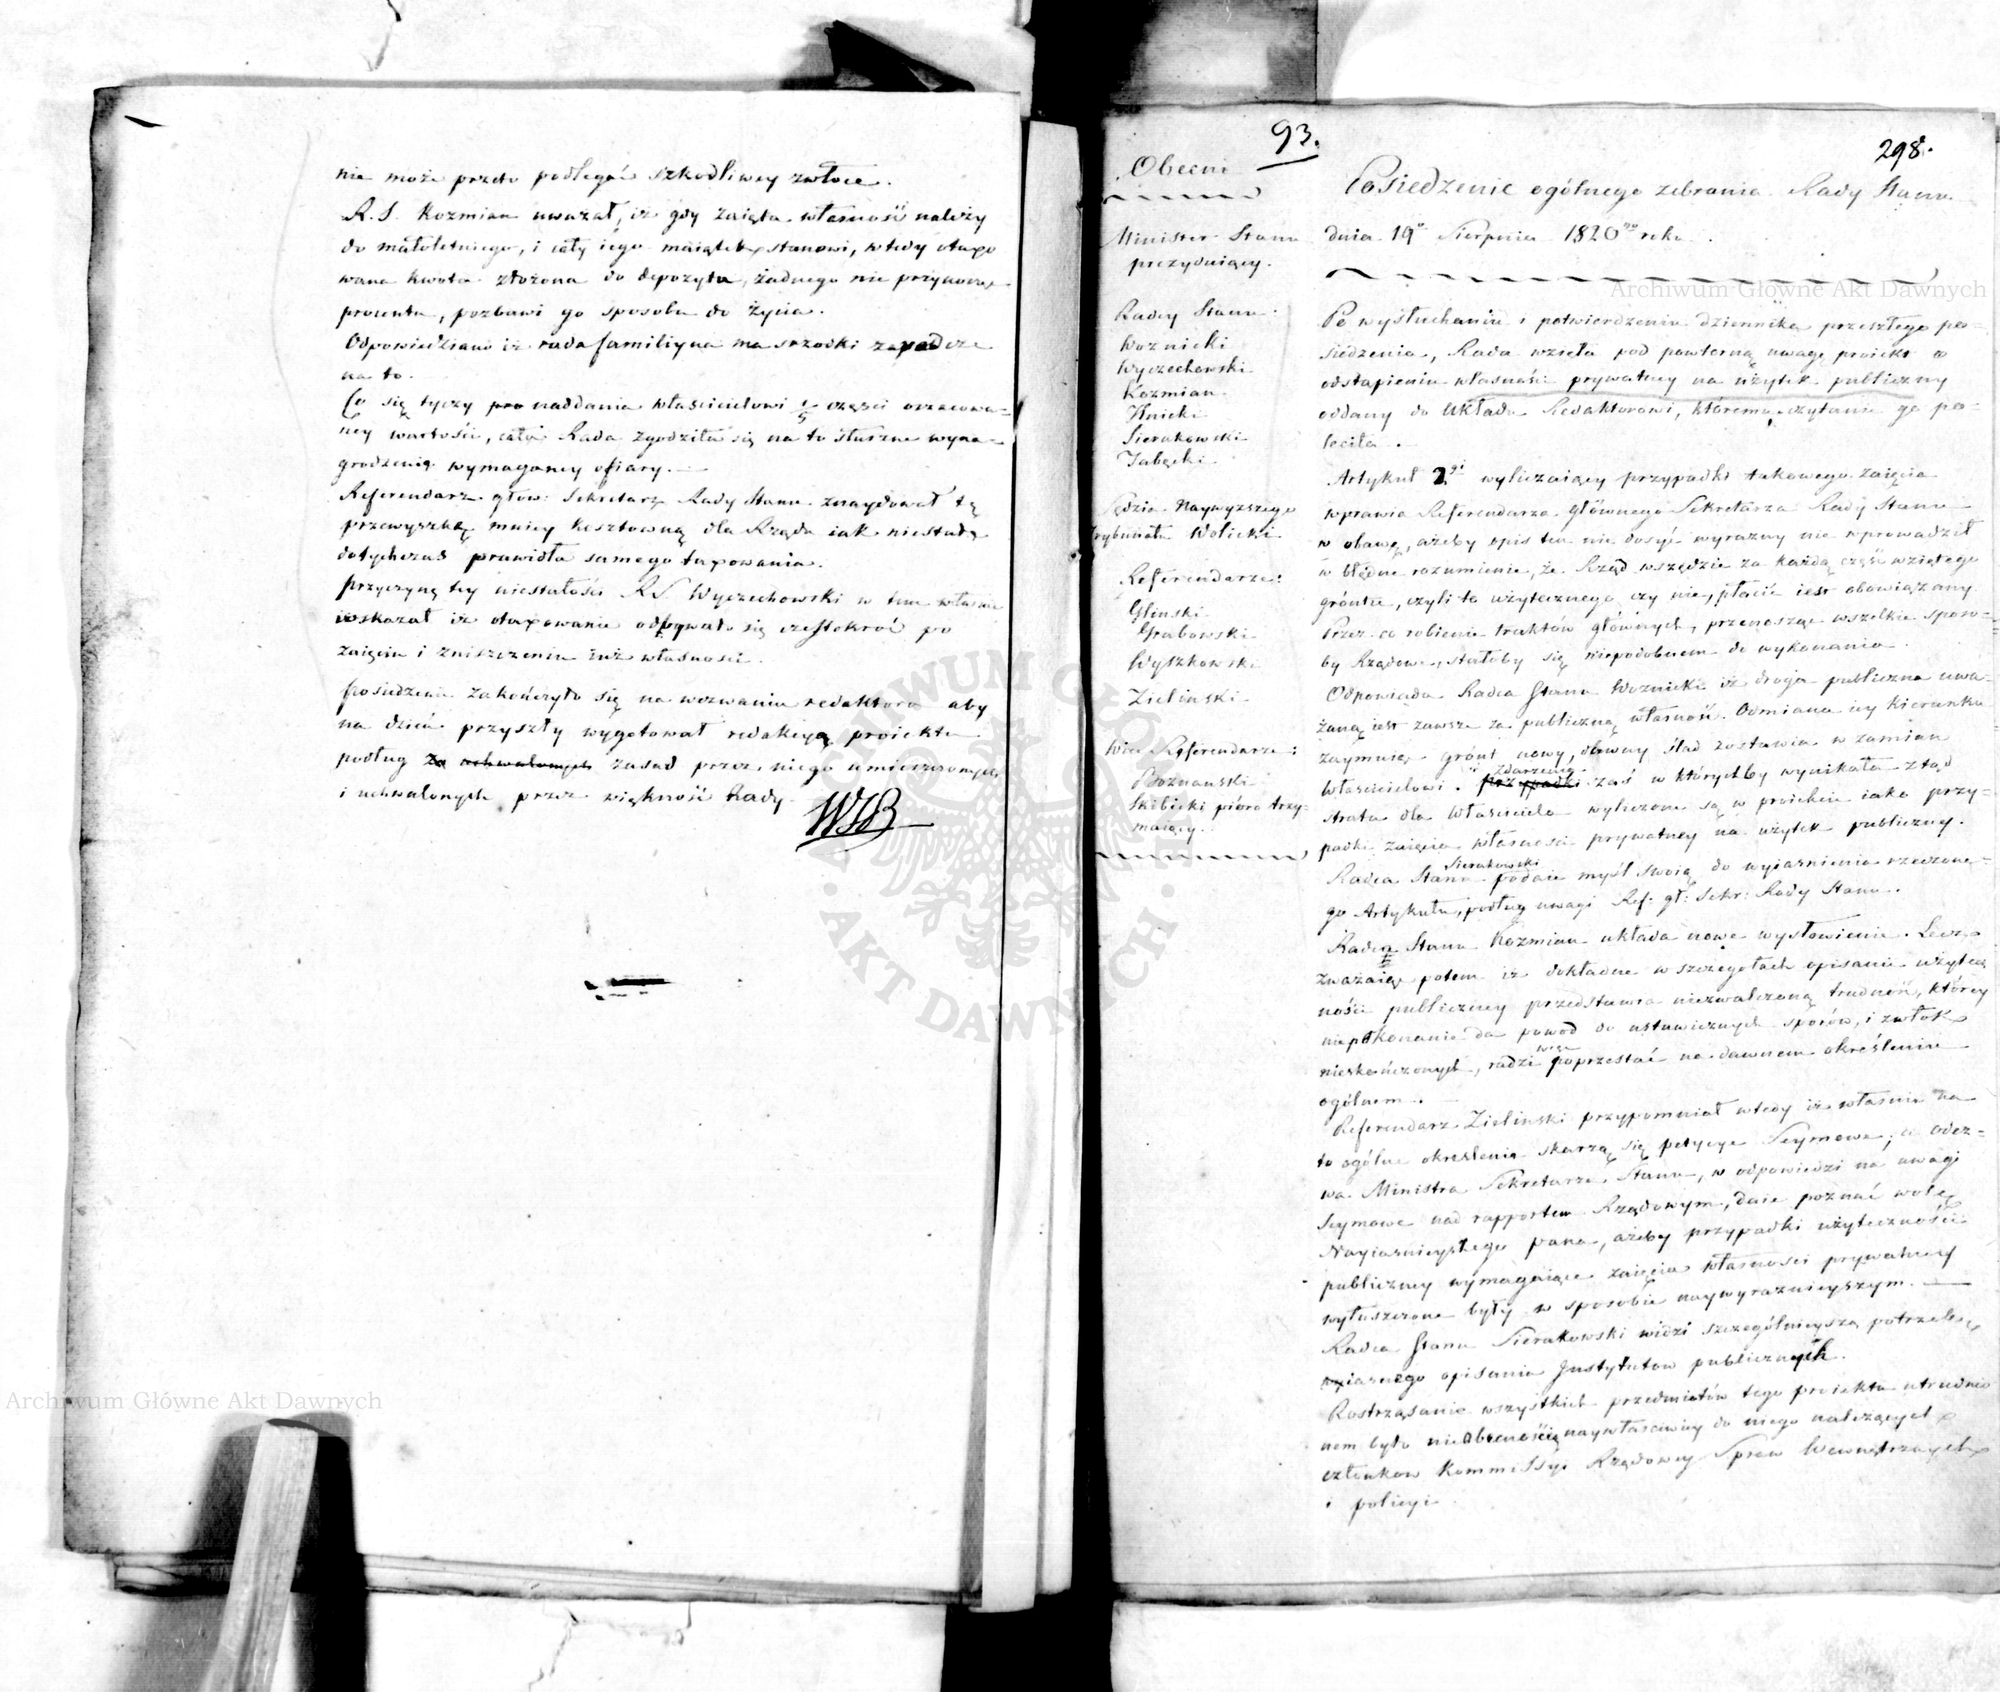 nie może przeto podlegać szkodliwey zwłoce.
R. S. Kozmian uważał, iż gdy zaięta własność należy
do małoletniego, i cały iego maiątek stanowi, wtedy otaxo
wana kwota złożona do depozytu, żadnego nie przynosząc
procentu, pozbawi go sposobu do życia.
Odpowiedziano iż rada familiyna ma srzodki zapobiedz
na to.
Co się tyczy pro naddania właścicielowi 1/5 części oszacowa-
ney wartości, cała Rada zgodziła się na to słuszne wyna-
grodzenie wymaganey ofiary.
Referendarz głow: Sekretarz Rady Stanu znaydował tę
przewyszkę mniey kosztowną dla Rządu iak niestałe
dotychczas prawidła samego taxowania.
Przyczynę tey niestałości RS Wyczechowski w tem właśnie
wskazał iż otaxowanie odbywało się częstokroć po
zaięciu i zniszczeniu iuż własności.
Posiedzenie zakończyło się na wezwaniu redaktora aby
na dzień przyszły wygotował redakcyą proiektu
podług za uchwalonych zasad przez niego umieszczonych
i uchwalonych przez większość Rady.
93.
298.
Obecni
Minister Stanu
prezyduiący.
Radcy Stanu:
Woznicki
Wyczechowski
Kozmian
Sierakowski
Sędzia Naywyższego
Trybunału Wolicki
Referendarze:
Gliński
Grabowski
Wyszkowski
Zieliński
Wice Referendarze:
Poznanski
Skibicki pióro trzy-
maiący.
Posiedzenie ogólnego zebrania Rady Stanu
dnia 19o Sierpnia 1820go roku.
Po wysłuchaniu i potwierdzeniu dziennika przeszłego po-
siedzenia, Rada wzięła pod powtorną uwagę proiekt o
odstąpieniu własności prywatney na użytek publiczny
oddany do układu Redaktorowi, któremu czytanie go po-
leciła.
Artykuł 2gi wyliczaiący przypadki takowego zaięcia
wprawia Referendarza głównego Sekretarza Rady Stanu
w obawę, ażeby opis ten nie dosyć wyrazny nie wprowadził
w błędne rozumienie, że Rząd wszędzie za każdą część wziętego
gróntu, czyli to użytecznego czy nie, płacić iest obowiązany
Przez co robienie traktów głównych, przenosząc wszelkie sposo-
by Rządowe, stałoby się niepodobnem do wykonania.
Odpowiada Radca Stanu Woznicki iż droga publiczna uwa-
żaną iest zawsze za publiczną własność. Odmiana iey kierunku
zaymuiąc grónt nowy, dawny ślad zostawia w zamian
właścicielowi. przypadki zdarzenia zaś w którychby wynikała ztąd
strata dla właściciela wyliczone są w proiekcie iako przy-
padki zaięcia własności prywatney na użytek publiczny.
Radca Stanu Sierakowski podaie myśl swoią do wyiaśnienia rzeczone-
go Artykułu, podług uwagi Ref: gł: Sekr: Rady Stanu.
Radca Stanu Kozmian układa nowe wysłowienie. Lecz
zważaiąc potem iż dokładne w szczegołach opisanie użytecz
ności publiczney przedstawia niezwalczoną trudność, którey
niepokonanie da powód do ustawicznych sporów, i zwłok
nieskończonych, radzi więc poprzestać na dawnem określeniu
ogólnem.
Referendarz Zielinski przypomniał wtedy iż właśnie na
to ogólne określenie skarżą się petycye Seymowe; a odez-
wa Ministra Sekretarza Stanu, w odpowiedzi na uwagi
Seymowe nad rapportem Rządowym, daie poznać wolę
Nayiaśnieyszego Pana, ażeby przypadki użyteczności
publiczney wymagaiące zaięcia własności prywatney
wyłuszczone były w sposobie naywyraznieyszym.
Radca Stanu Sierakowski widzi szczególnieyszą potrzebę
iasnego opisania Instytutow publicznych.
Rostrząsanie wszystkich przedmiotów tego proiektu utrudnio
nem było nieobecnością naywłaściwiey do niego należących
członkow Kommissyi Rządowey Spraw Wewnętrznych
i policyi.
Archiwum Główne Akt Dawnych
Archiwum Główne Akt Dawnych
ARCHIWUM GŁÓWNE AKT DAWNYCH